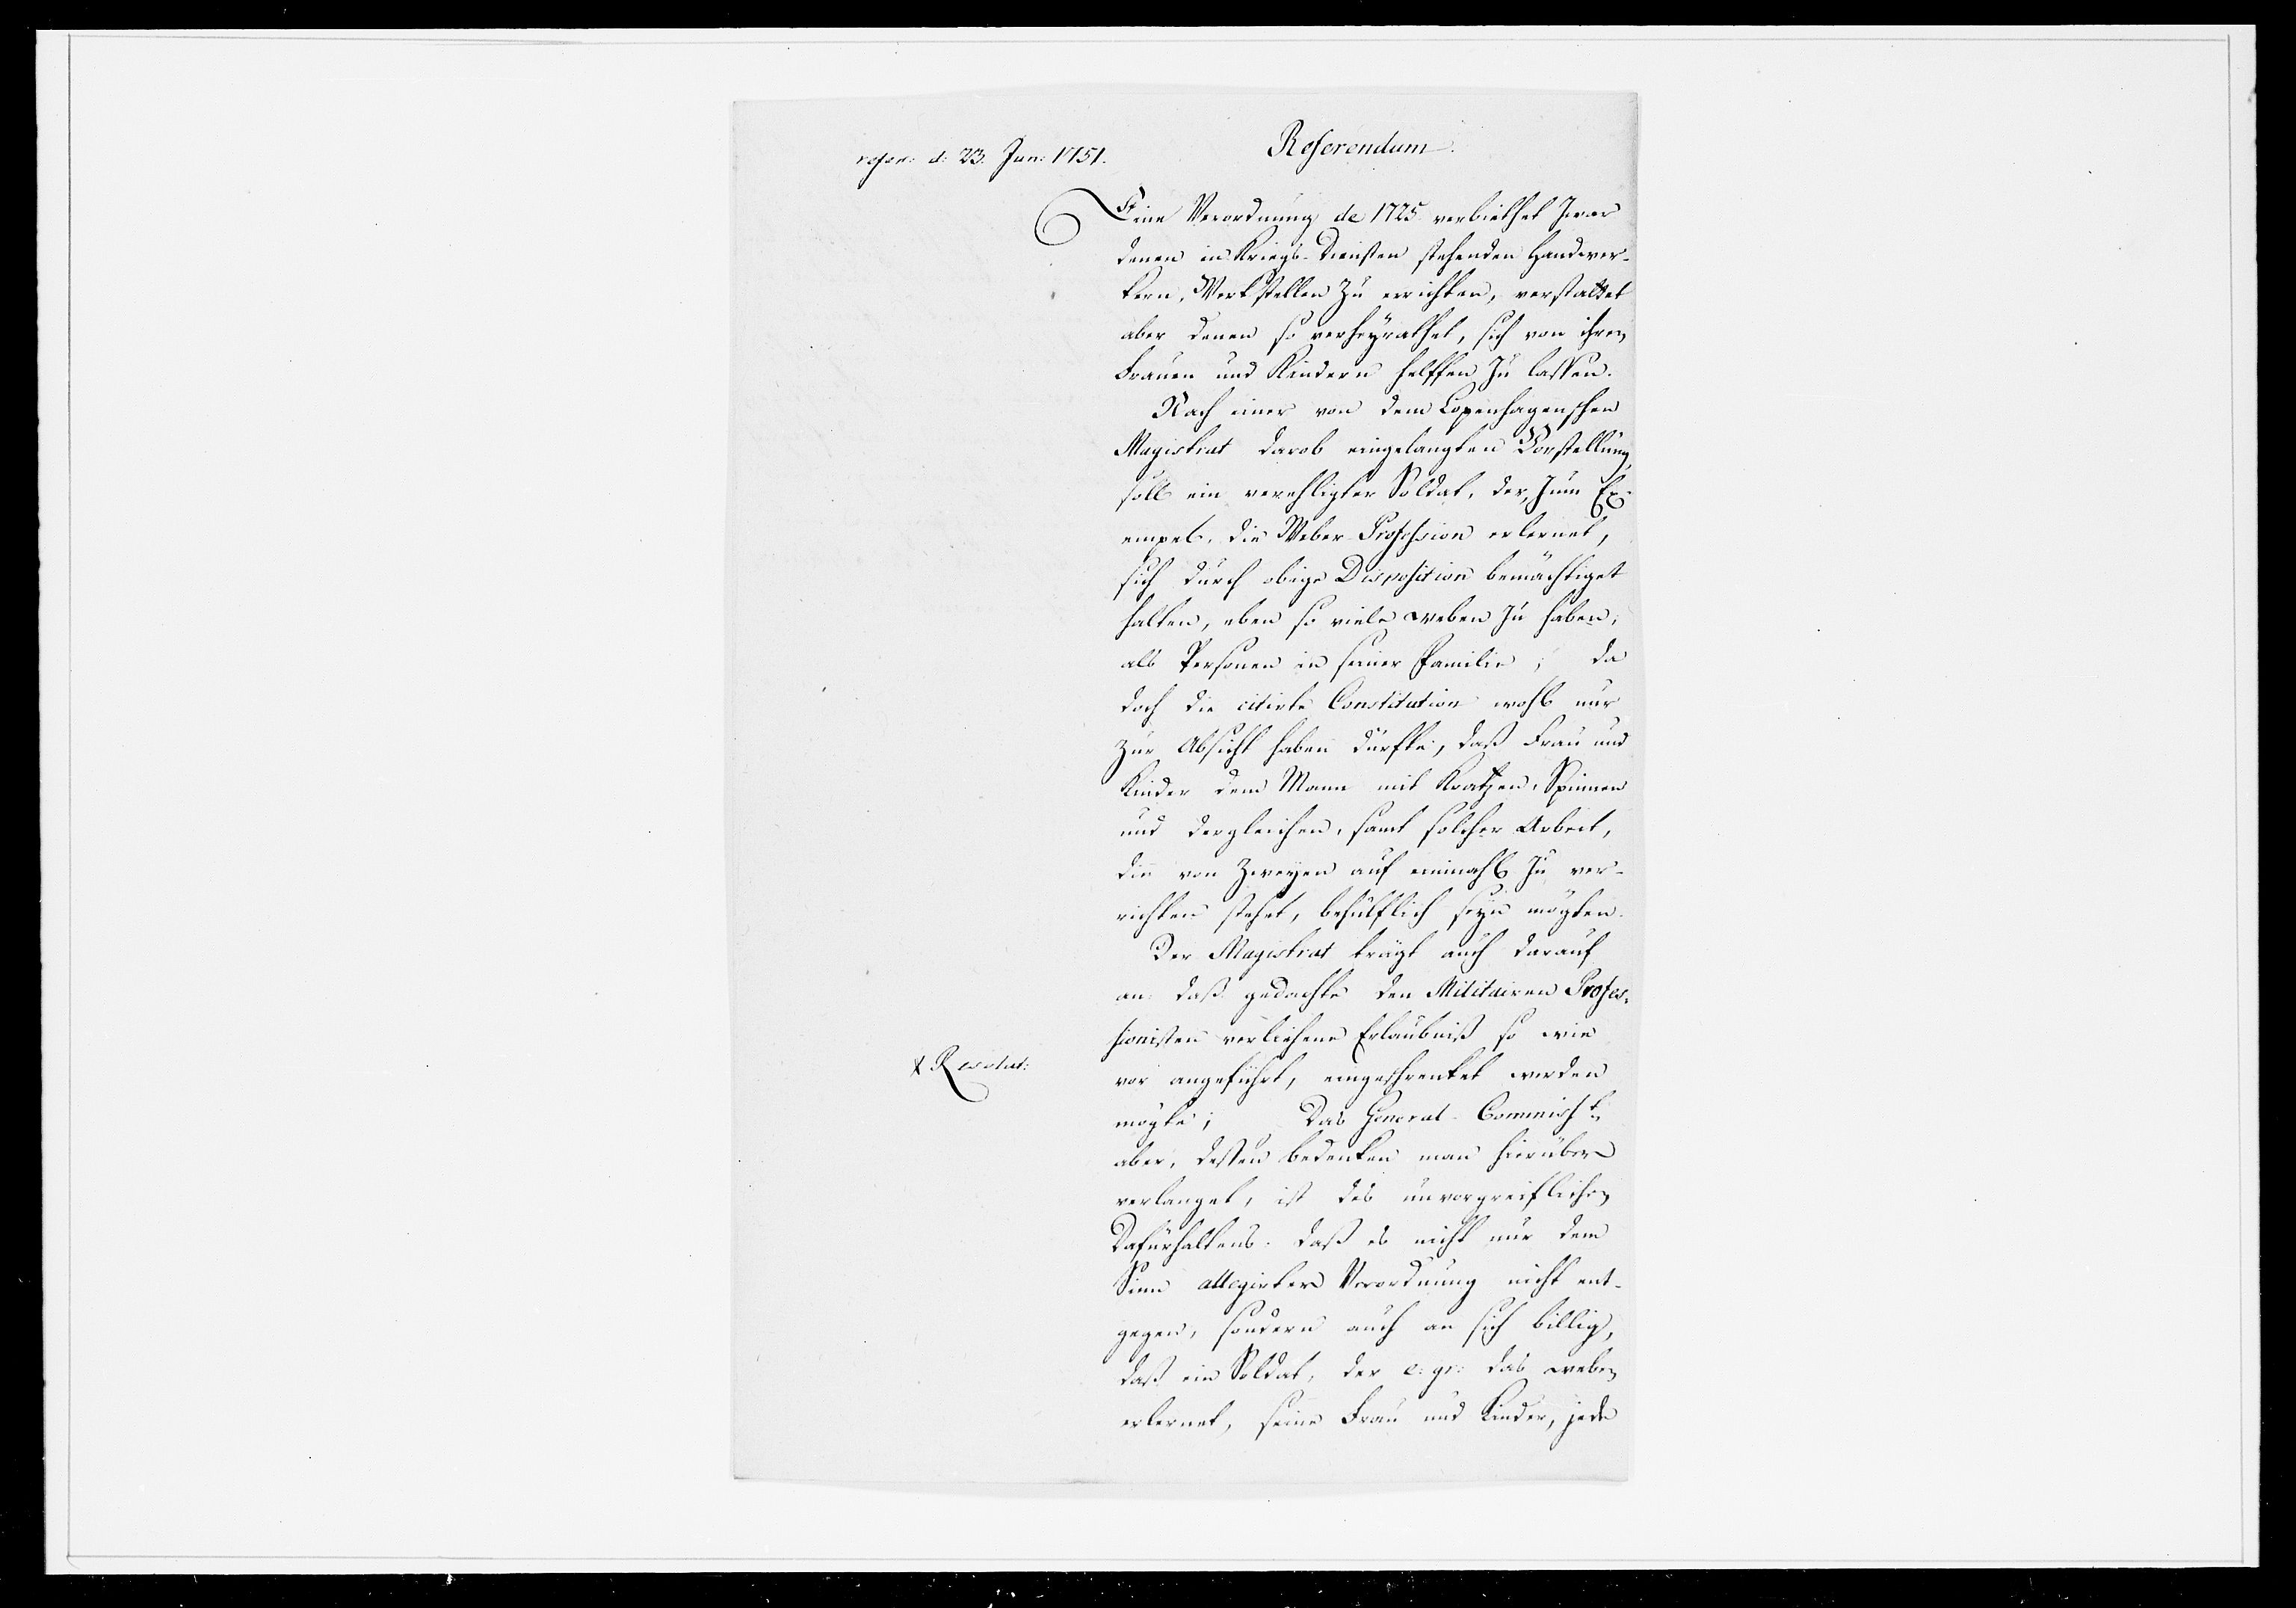 refer: d: 23. Jun: 1751.
Referendum.
Eine Verordnung de 1725 verbiethet zwar
denen in Kriegs-Diensten stehenden Handwer-
kern, Werkstellen zu errichten, verstattet
aber denen so verheyrathet, sich von ihren
Frauen und Kindern helffen zu lassen.
Nach einer von dem Copenhagenschen
Magistrat darob eingelangten Vorstellung
soll ein verehligter Soldat, der, zum Ex-
empel, die Weber-Profession erlernet,
sich durch obige Disposition bemächtiget
halten, eben so viele weben zu haben,
als Personen in seiner Familie; da
doch die citirte Constitution wohl nur
zur Absicht haben dürfte, daß Frau und
Kinder dem Mann mit Kratzen, Spinnen
und dergleichen, samt solcher Arbeit,
die von zweyen auf einmahl zu ver-
richten stehet, behülflich seyn mögten.
Der Magistrat trägt auch darauf
an daß gedachte den Militairen Profes-
sionisten verliehene Erlaubniß so wie
vor angeführt, eingeschrenket werden
mögte; Das General-Commiss:t
aber, dessen bedenken man hierüber
verlanget, ist des unvorgreiflichen
Dafürhaltens, daß es nicht nur dem
Sinn allegirter Verordnung nicht ent-
gegen, sondern auch an sich billig,
daß ein Soldat, der e: gr: das weben
erlernet, seine Frau und Kinder, jede
x Resolut: